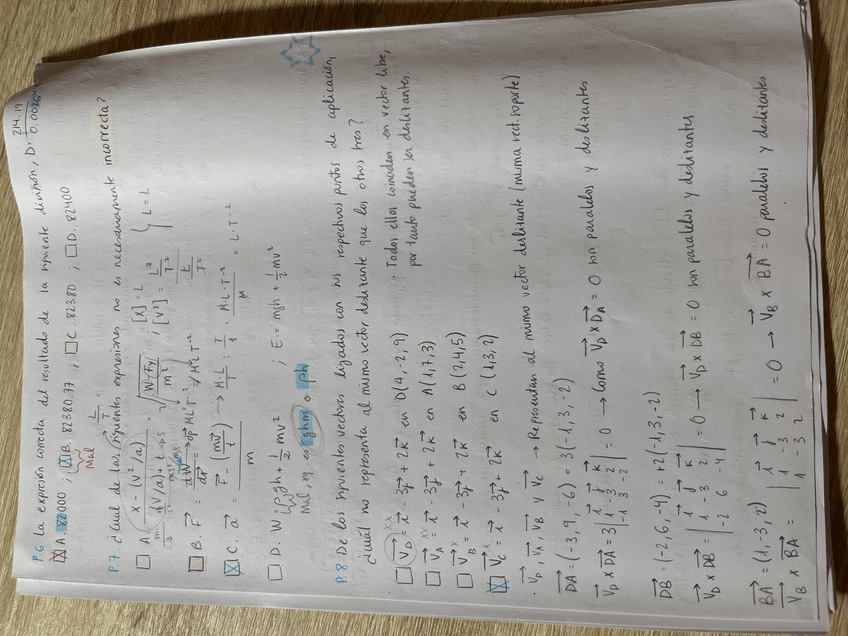 P.6 La expresión correcta del resultado de la siguiente división, D = 214.19 / 0.0026
A. 82000 ; B. 82380.77 ; C. 82380 ; D. 82400
Mal
P.7 ¿Cuál de las siguientes expresiones no es necesariamente incorrecta?
A. x - (v²/a) / (v/a) + t = √(W·Fy / m²) ; [x] = L ; [v²] = L²/T² } L = L
B. F⃗ = dW⃗ / dr⃗
C. a⃗ = F⃗ - (mv⃗ / t) / m → M·L/T : T/1 = M·L·T⁻² / M = L·T⁻²
D. W = ρgh + ½mv² ; E = mgh + ½mv²
Mal, ya es ghm o ρh
P.8 De los siguientes vectores ligados con sus respectivos puntos de aplicación,
¿cuál no representa al mismo vector deslizante que los otros tres?
V⃗D = i⃗ - 3j⃗ + 2k⃗ en D(4,-2,9)
V⃗A = i⃗ - 3j⃗ + 2k⃗ en A(1,7,3)
V⃗B = i⃗ - 3j⃗ + 2k⃗ en B(2,4,5)
V⃗C = i⃗ - 3j⃗ + 2k⃗ en C(1,3,2)
· Todos ellos coinciden en vector libre,
por tanto pueden ser deslizantes
· V⃗D, V⃗A, V⃗B y V⃗C → Representan al mismo vector deslizante (misma rect. soporte)
DA⃗ = (-3, 9, -6) = 3(-1, 3, -2)
V⃗D x DA⃗ = 3 | i⃗ j⃗ k⃗ | 1 -3 2 | -1 3 -2 | = 0 → Como V⃗D x D⃗A = 0 son paralelos y deslizantes
DB⃗ = (-2, 6, -4) = +2(-1, 3, -2)
V⃗D x DB⃗ = | i⃗ j⃗ k⃗ | 1 -3 2 | -2 6 -4 | = 0 → V⃗D x DB⃗ = 0 son paralelos y deslizantes
BA⃗ = (1, -3, 2)
V⃗B x BA⃗ = | i⃗ j⃗ k⃗ | 1 -3 2 | 1 -3 2 | = 0 → V⃗B x BA⃗ = 0 paralelos y deslizantes